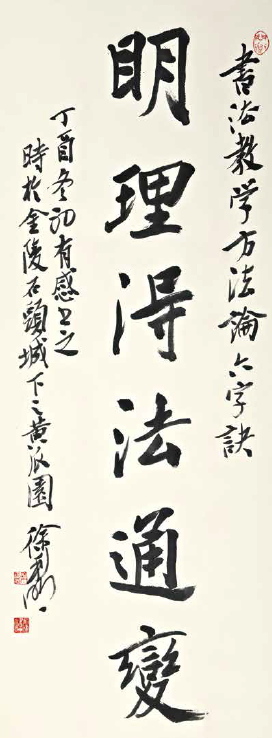 書法教学方法論六字訣
明理得法通變
丁酉冬初有感書之
時於金陵石頭城下之黄瓜園
徐利明